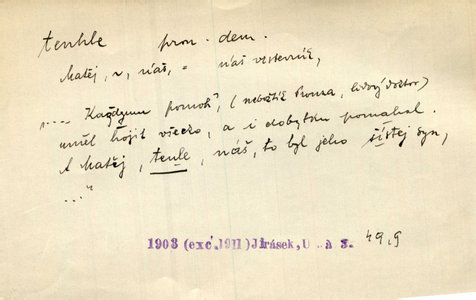 tenhle pron. dem.
Matěj, ~, náš, = náš vrstevník,
"... Každymu pomoh", (nebožtík Prouza, lidový doktor)
uměl hojit všecko, a i dobytku pomahal.
A Matěj, tenle, náš, to byl jeho čistej syn,
..."
1903 (exc. 1911) Jirásek, U nás 3. 49,9